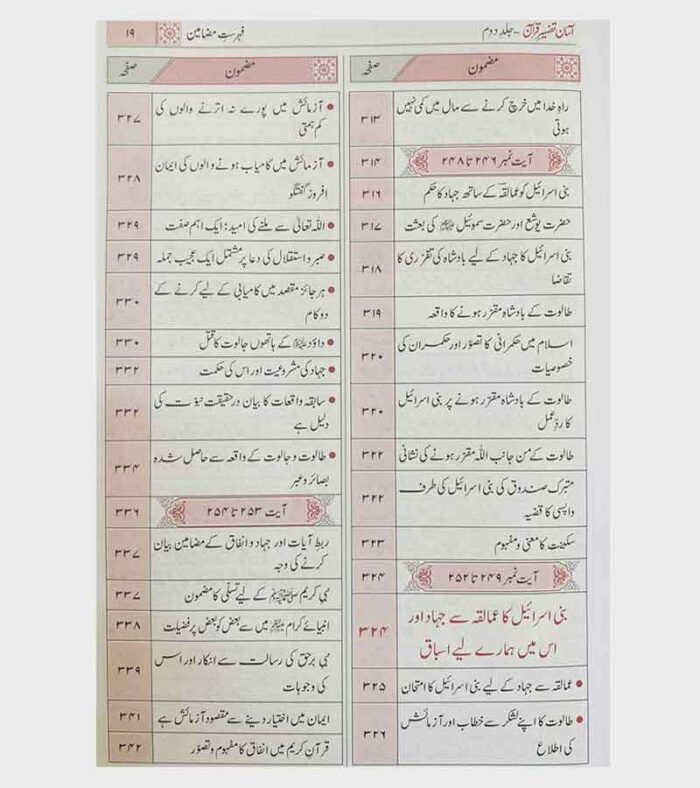 آسان تفسیر قرآن - جلد دوم
فہرستِ مضامین
۱۹
مضمون
صفحہ
راہِ خدا میں خرچ کرنے سے مال میں کمی نہیں
ہوتی
۳۱۳
آیت نمبر ۲۴۶ تا ۲۴۸
۳۱۴
بنی اسرائیل کو عمالقہ کے ساتھ جہاد کا حکم
۳۱۶
حضرت یوشع اور حضرت سموئیل ﷩ کی بعثت
۳۱۷
بنی اسرائیل کا جہاد کے لیے بادشاہ کی تقرّری کا
تقاضا
۳۱۸
طالوت کے بادشاہ مقرّر ہونے کا واقعہ
۳۱۹
اسلام میں حکمرانی کا تصوّر اور حکمران کی
خصوصیات
۳۲۰
طالوت کے بادشاہ مقرّر ہونے پر بنی اسرائیل
کا ردِّ عمل
۳۲۰
طالوت کے من جانب اللّٰہ مقرّر ہونے کی نشانی
۳۲۲
متبرک صندوق کی بنی اسرائیل کی طرف
واپسی کا قضیہ
۳۲۲
سکینت کا معنی و مفہوم
۳۲۳
آیت نمبر ۲۴۹ تا ۲۵۲
۳۲۴
بنی اسرائیل کا عمالقہ سے جہاد اور
اس میں ہمارے لیے اسباق
۳۲۴
• عمالقہ سے جہاد کے لیے بنی اسرائیل کا امتحان
۳۲۵
• طالوت کا اپنے لشکر سے خطاب اور آزمائش
کی اطلاع
۳۲۶
مضمون
صفحہ
• آزمائش میں پورے نہ اترنے والوں کی
کم ہمتی
۳۲۷
• آزمائش میں کامیاب ہونے والوں کی ایمان
افروز گفتگو
۳۲۸
• اللّٰہ تعالیٰ سے ملنے کی امید: ایک اہم صفت
۳۲۹
• صبر و استقلال کی دعا پر مشتمل ایک عجیب جملہ
۳۲۹
• ہر جائز مقصد میں کامیابی کے لیے کرنے کے
دو کام
۳۳۰
• داؤد ﷤ کے ہاتھوں جالوت کا قتل
۳۳۰
• جہاد کی مشروعیت اور اس کی حکمت
۳۳۲
• سابقہ واقعات کا بیان درحقیقت نبوّت کی
دلیل ہے
۳۳۲
• طالوت و جالوت کے واقعہ سے حاصل شدہ
بصائر و عبر
۳۳۴
آیت ۲۵۳ تا ۲۵۴
۳۳۶
ربطِ آیات اور جہاد و انفاق کے مضامین بیان
کرنے کی وجہ
۳۳۷
نبی کریم ﷺ کے لیے تسلّی کا مضمون
۳۳۷
انبیائے کرام ﷩ میں سے بعض کو بعض پر فضیلت
۳۳۸
نبی برحق کی رسالت سے انکار اور اس
کی وجوہات
۳۳۹
ایمان میں اختیار دینے سے مقصود آزمائش ہے
۳۴۱
قرآنِ کریم میں انفاق کا مفہوم و تصوّر
۳۴۲